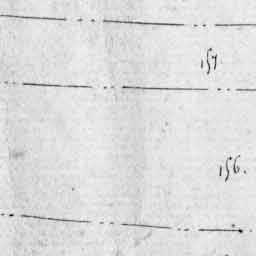 157
156.